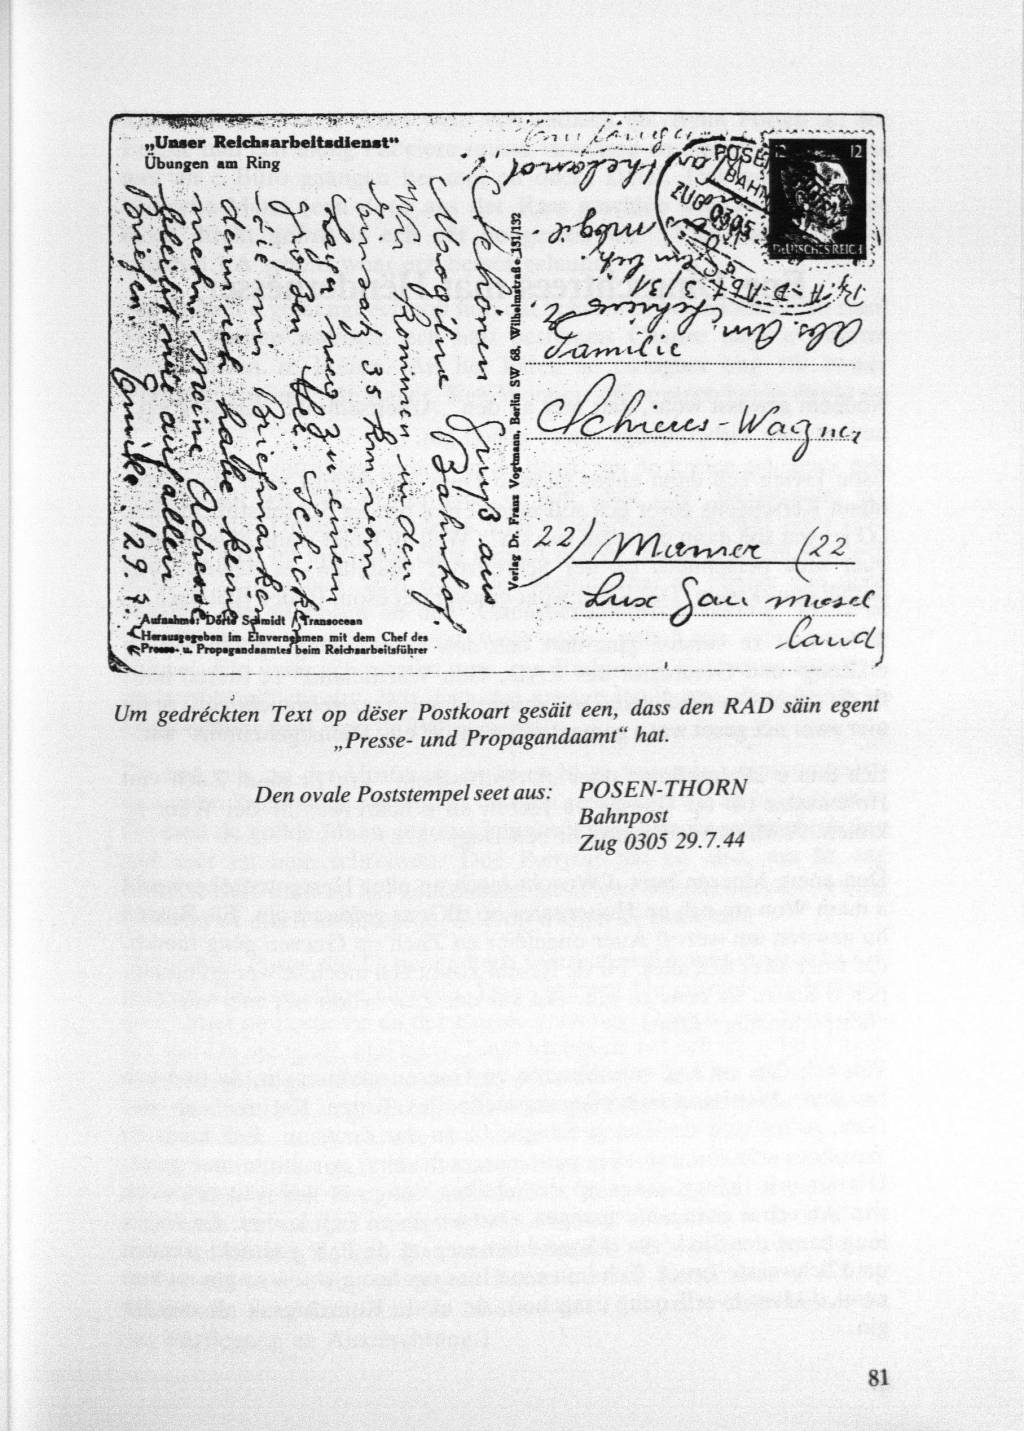 „Unser Reichsarbeitsdienst“
Übungen am Ring
Schönen Gruß aus
Mogilno Bahnhof.
Wir kommen in den
Einsatz 35 km vom
Lager weg zu einem
großen
Sie mir Briefmarken
denn ich habe keine
mehr. Meine Adresse
bleibt wie auf allen
Briefen. Emile. 29.7.44
Aufnahme: Dörte Schmidt / Transocean
Herausgegeben im Einvernehmen mit dem Chef des
Presse- u. Propagandaamtes beim Reichsarbeitsführer
Verlag Dr. Franz Vogtmann, Berlin SW 68, Wilhelmstraße 131/132
POSEN
BAHN
ZUG 0305
12 12
DEUTSCHES REICH
Abs. Am. Schieres
R.A.D. Abt 3/31
Familie
Schieres-Wagner
22) Mamer (22
Lux Gau mosel
land
Um gedréckten Text op dëser Postkoart gesäit een, dass den RAD säin egent
„Presse- und Propagandaamt“ hat.
Den ovale Poststempel seet aus: POSEN-THORN
Bahnpost
Zug 0305 29.7.44
81